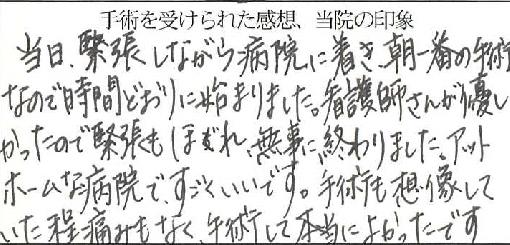 手術を受けられた感想、当院の印象
当日、緊張しながら病院に着き、朝一番の手術
なので時間どおりに始まりました。看護師さんが優し
かったので緊張もほぐれ、無事に終わりました。アット
ホームな病院で、すごくいいです。手術も想像して
いた程痛みもなく、手術して本当によかったです